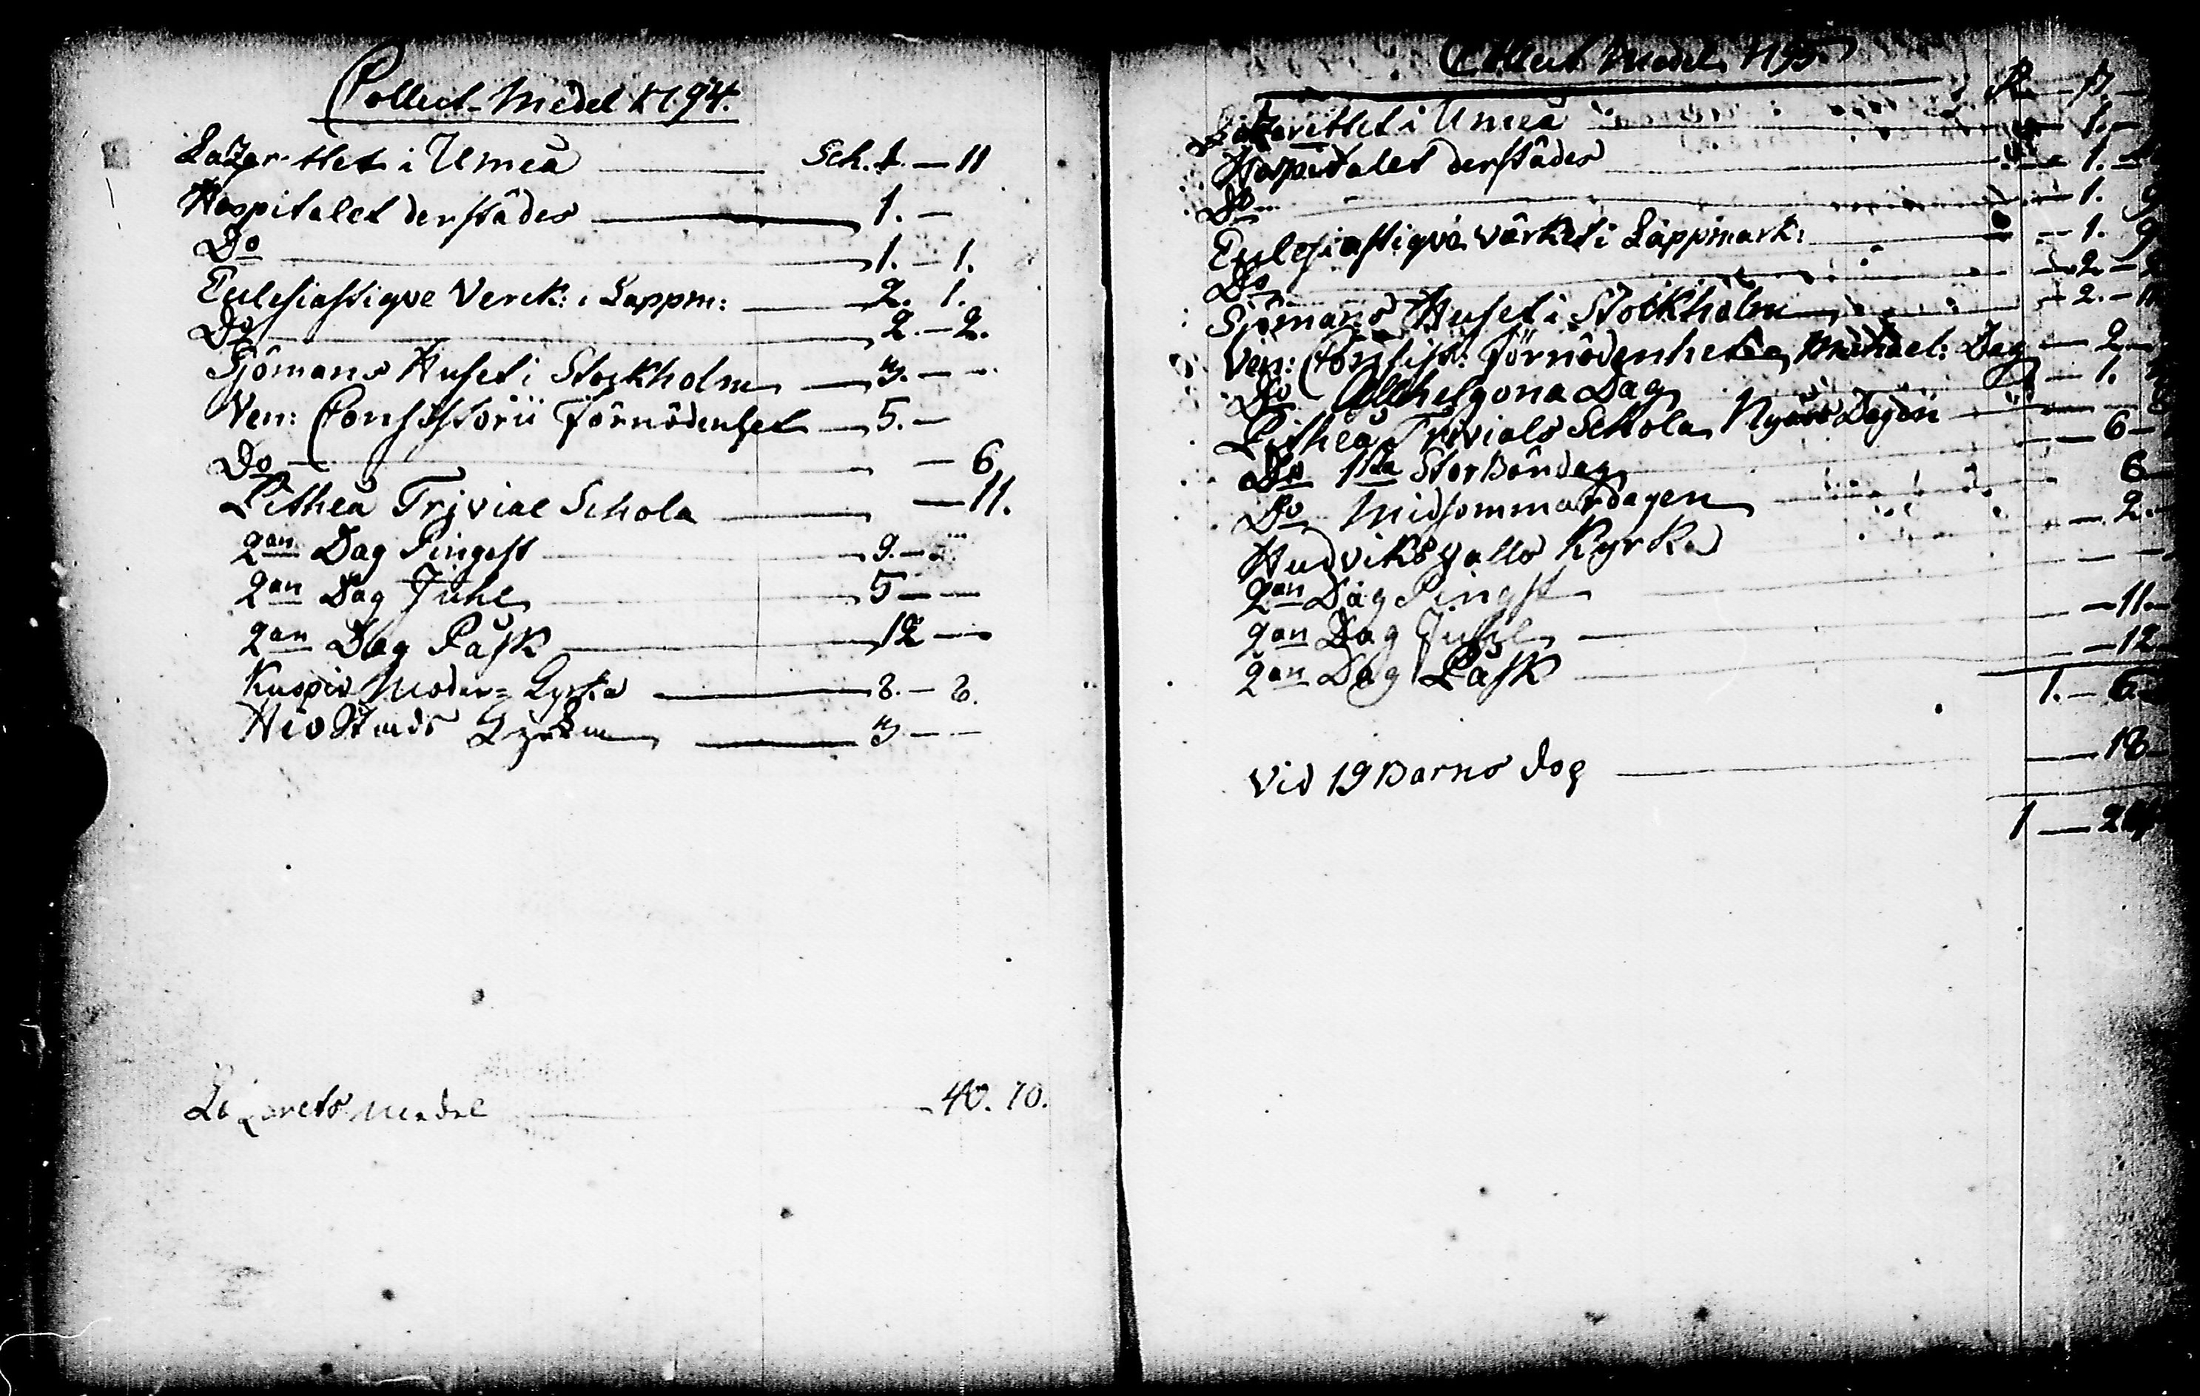 Collect Medel 1794.
Lazarettet i Umeå Sch. 1. — 11
Hospitalet derstädes 1. —
Do 1. — 1.
Ecclesiastiqve Verck: i Lappm: 2. 1.
Do 2. — 2.
Sjömans Huset i Stockholm 3. —
Ven: Consistorii Förnödenhet 5. —
Do — 6
Pitheå Trivial Schola — 11.
2an Dag Pingest 9. —
2an Dag Juhl 5 —
2an Dag Påsk 12 —
Kuopio Moder= Kyrka 8. — 8.
Stads Kyrkan 3 —
Lazarets Medel 40. 10.
Collect Medel 1795.
Lazarettet i Umeå 1. —
Hospitalet derstädes 1.
Do 1.
Ecclesiastiqve värket i Lappmark: 1.
Do 2 —
Sjömans Huset i Stockholm 2. —
Ven: Consist: Förnödenheter, Michael: Dag 2
Do Allhelgona Dag 1.
Pitheå Trivials Schola, Nyårs Dagen
Do 1sta Stor Böndag 6
Do Midsommardagen 6
Hudviksvalls Kyrka 2.
2an Dag Pingst
2an Dag Juhl — 11
2an Dag Påsk — 12
1. — 6
Vid 19 Barns dop 18
1 — 24